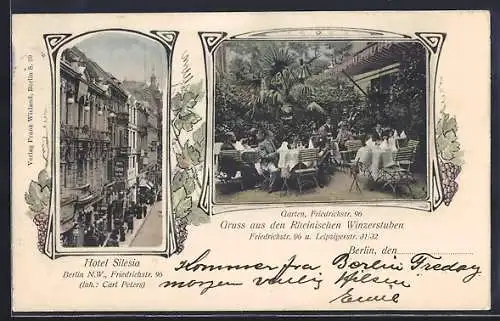 Verlag Franz Wieland, Berlin S. 59
Garten, Friedrichstr. 96
Gruss aus den Rheinischen Winzerstuben
Friedrichstr. 96 u. Leipzigerstr. 31/32
Berlin, den
Hotel Silesia
Berlin N.W., Friedrichstr. 96
(Inh.: Carl Peters)
Kommer fra Berlin Fredag
morgen venlig Hilsen